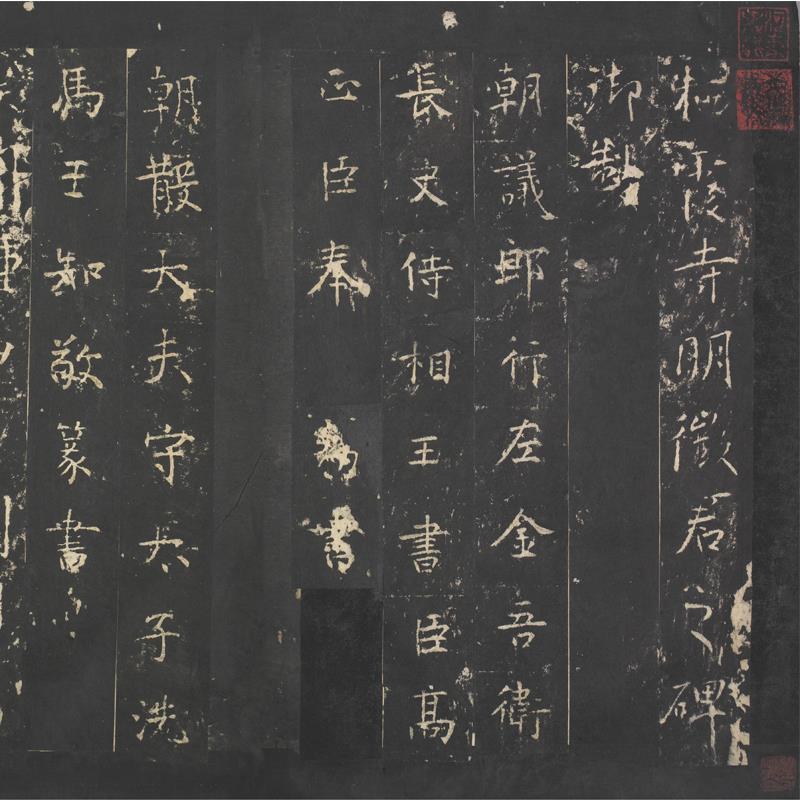 栖霞寺明徵君之碑
御製
朝議郎行左金吾衛
長史侍相王書臣高
正臣奉 書
朝散大夫守太子洗
馬王知敬篆書